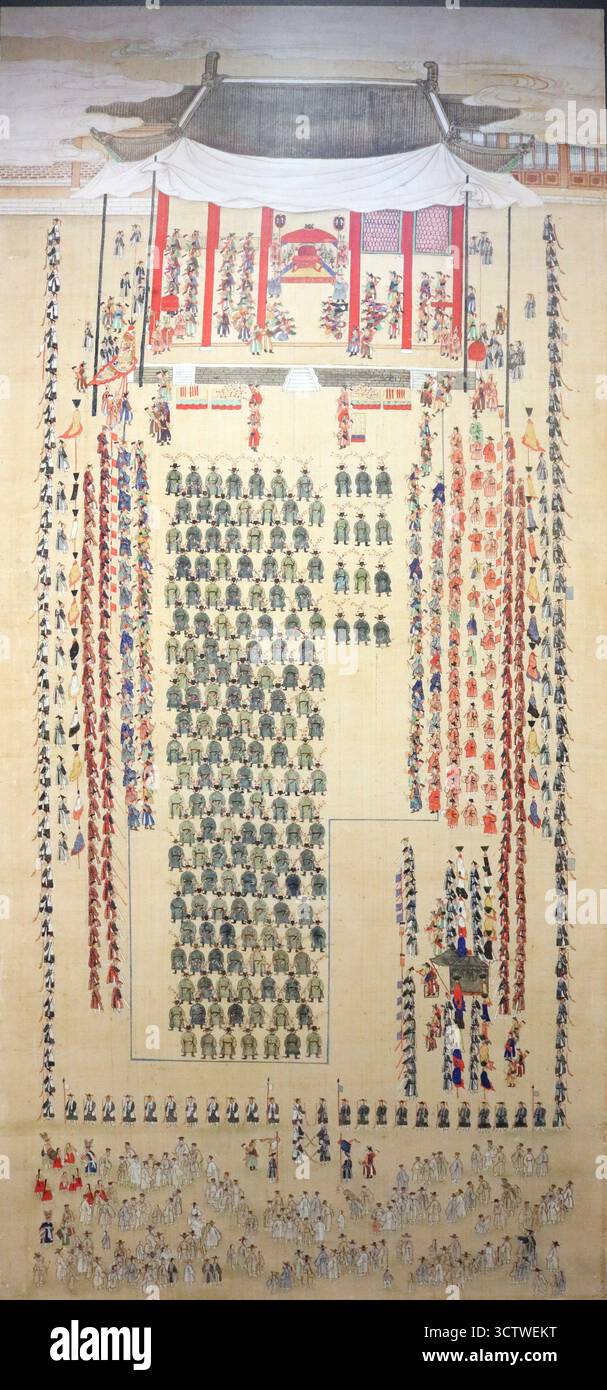 alamy
Image ID: 3CTWEKT
www.alamy.com